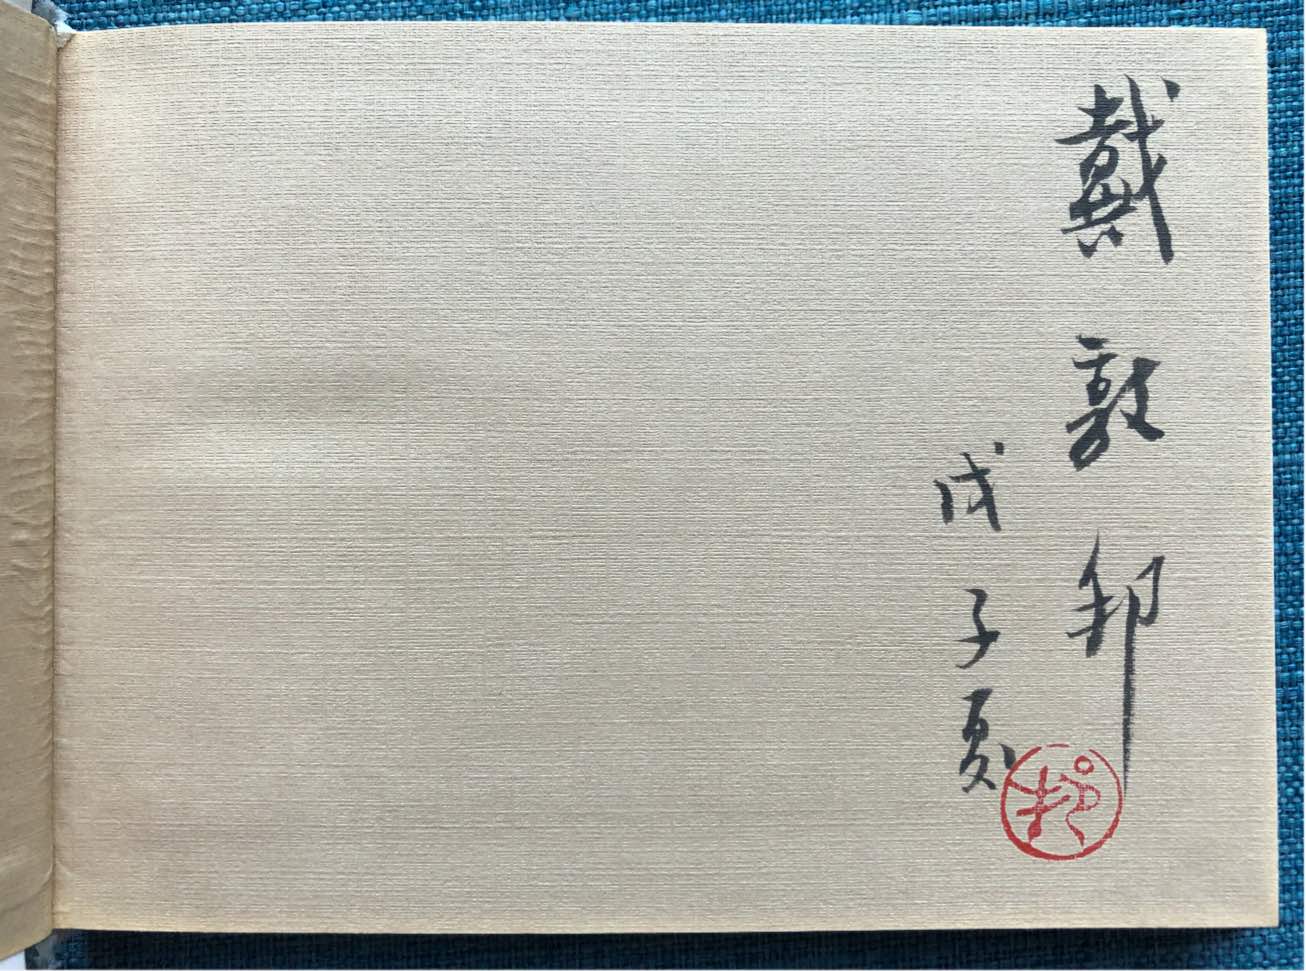 戴敦邦
戊子夏
邦